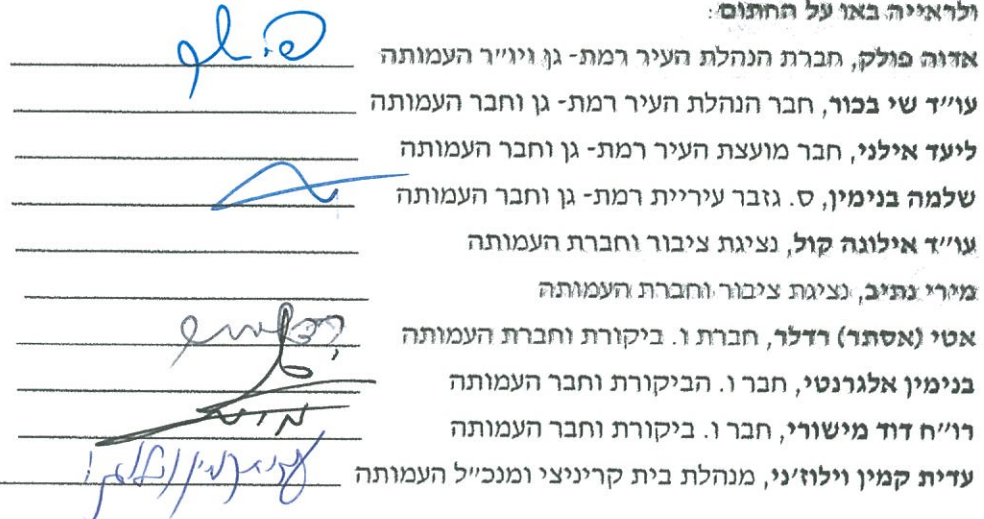 ולראייה באו על החתום:
אדוה פולק, חברת הנהלת העיר רמת- גן ויו״ר העמותה
עו״ד שי בכור, חבר הנהלת העיר רמת- גן וחבר העמותה
ליעד אילני, חבר מועצת העיר רמת- גן וחבר העמותה
שלמה בנימין, ס. גזבר עיריית רמת- גן וחבר העמותה
עו״ד אילונה קול, נציגת ציבור וחברת העמותה
מירי נתיב, נציגת ציבור וחברת העמותה
אטי (אסתר) רדלר, חברת ו. ביקורת וחברת העמותה
בנימין אלגרנטי, חבר ו. הביקורת וחבר העמותה
רו״ח דוד מישורי, חבר ו. ביקורת וחבר העמותה
עדית קמין וילוז׳ני, מנהלת בית קריניצי ומנכ״ל העמותה